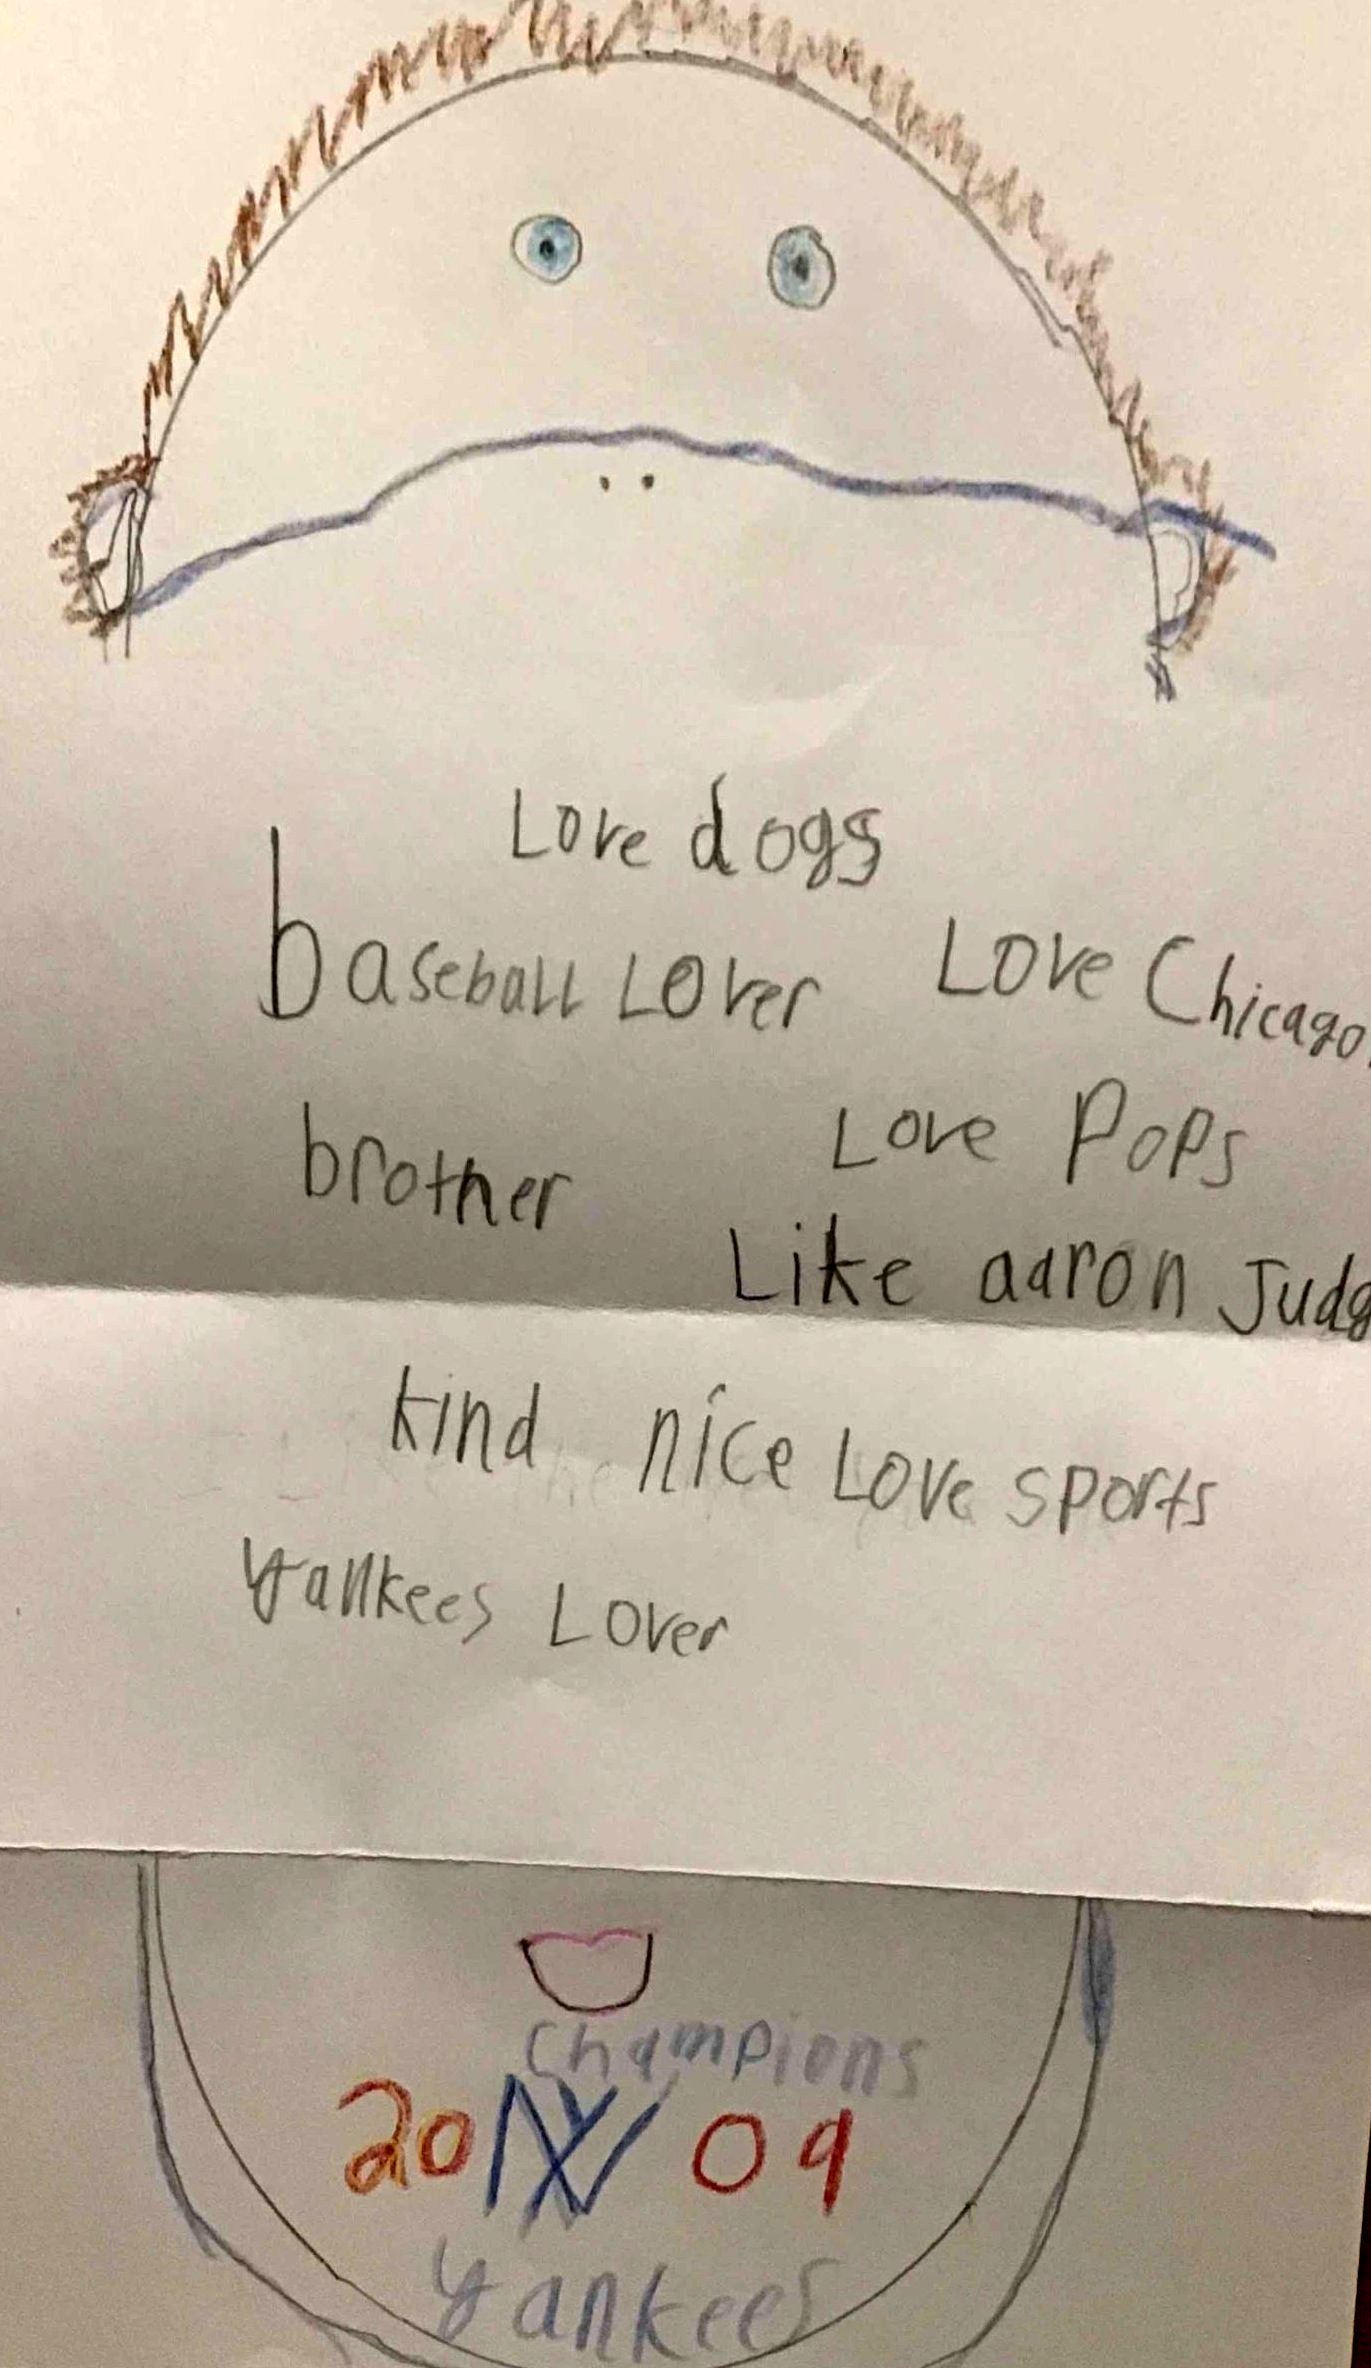 Love dogs
baseball Lover Love Chicago.
brother Love Pops
Like aaron Judg
kind nice Love sports
yankees Lover
Champions
20 NY 09
yankees